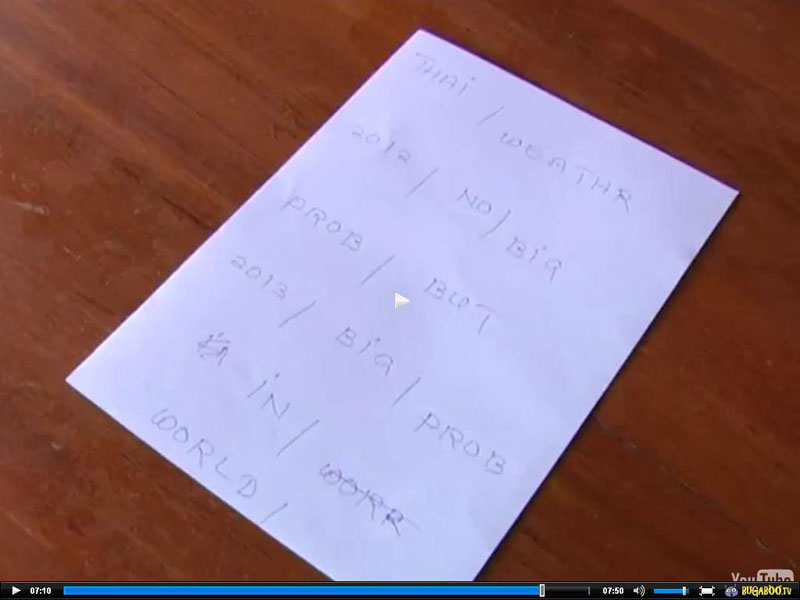 THAi / WEATHR
2012 / NO / BiG
PROB / BUT
2013 / BiG / PROB
iN / WORR
WORLD /
YouTube
07:10
07:50
BUGABOO.TV